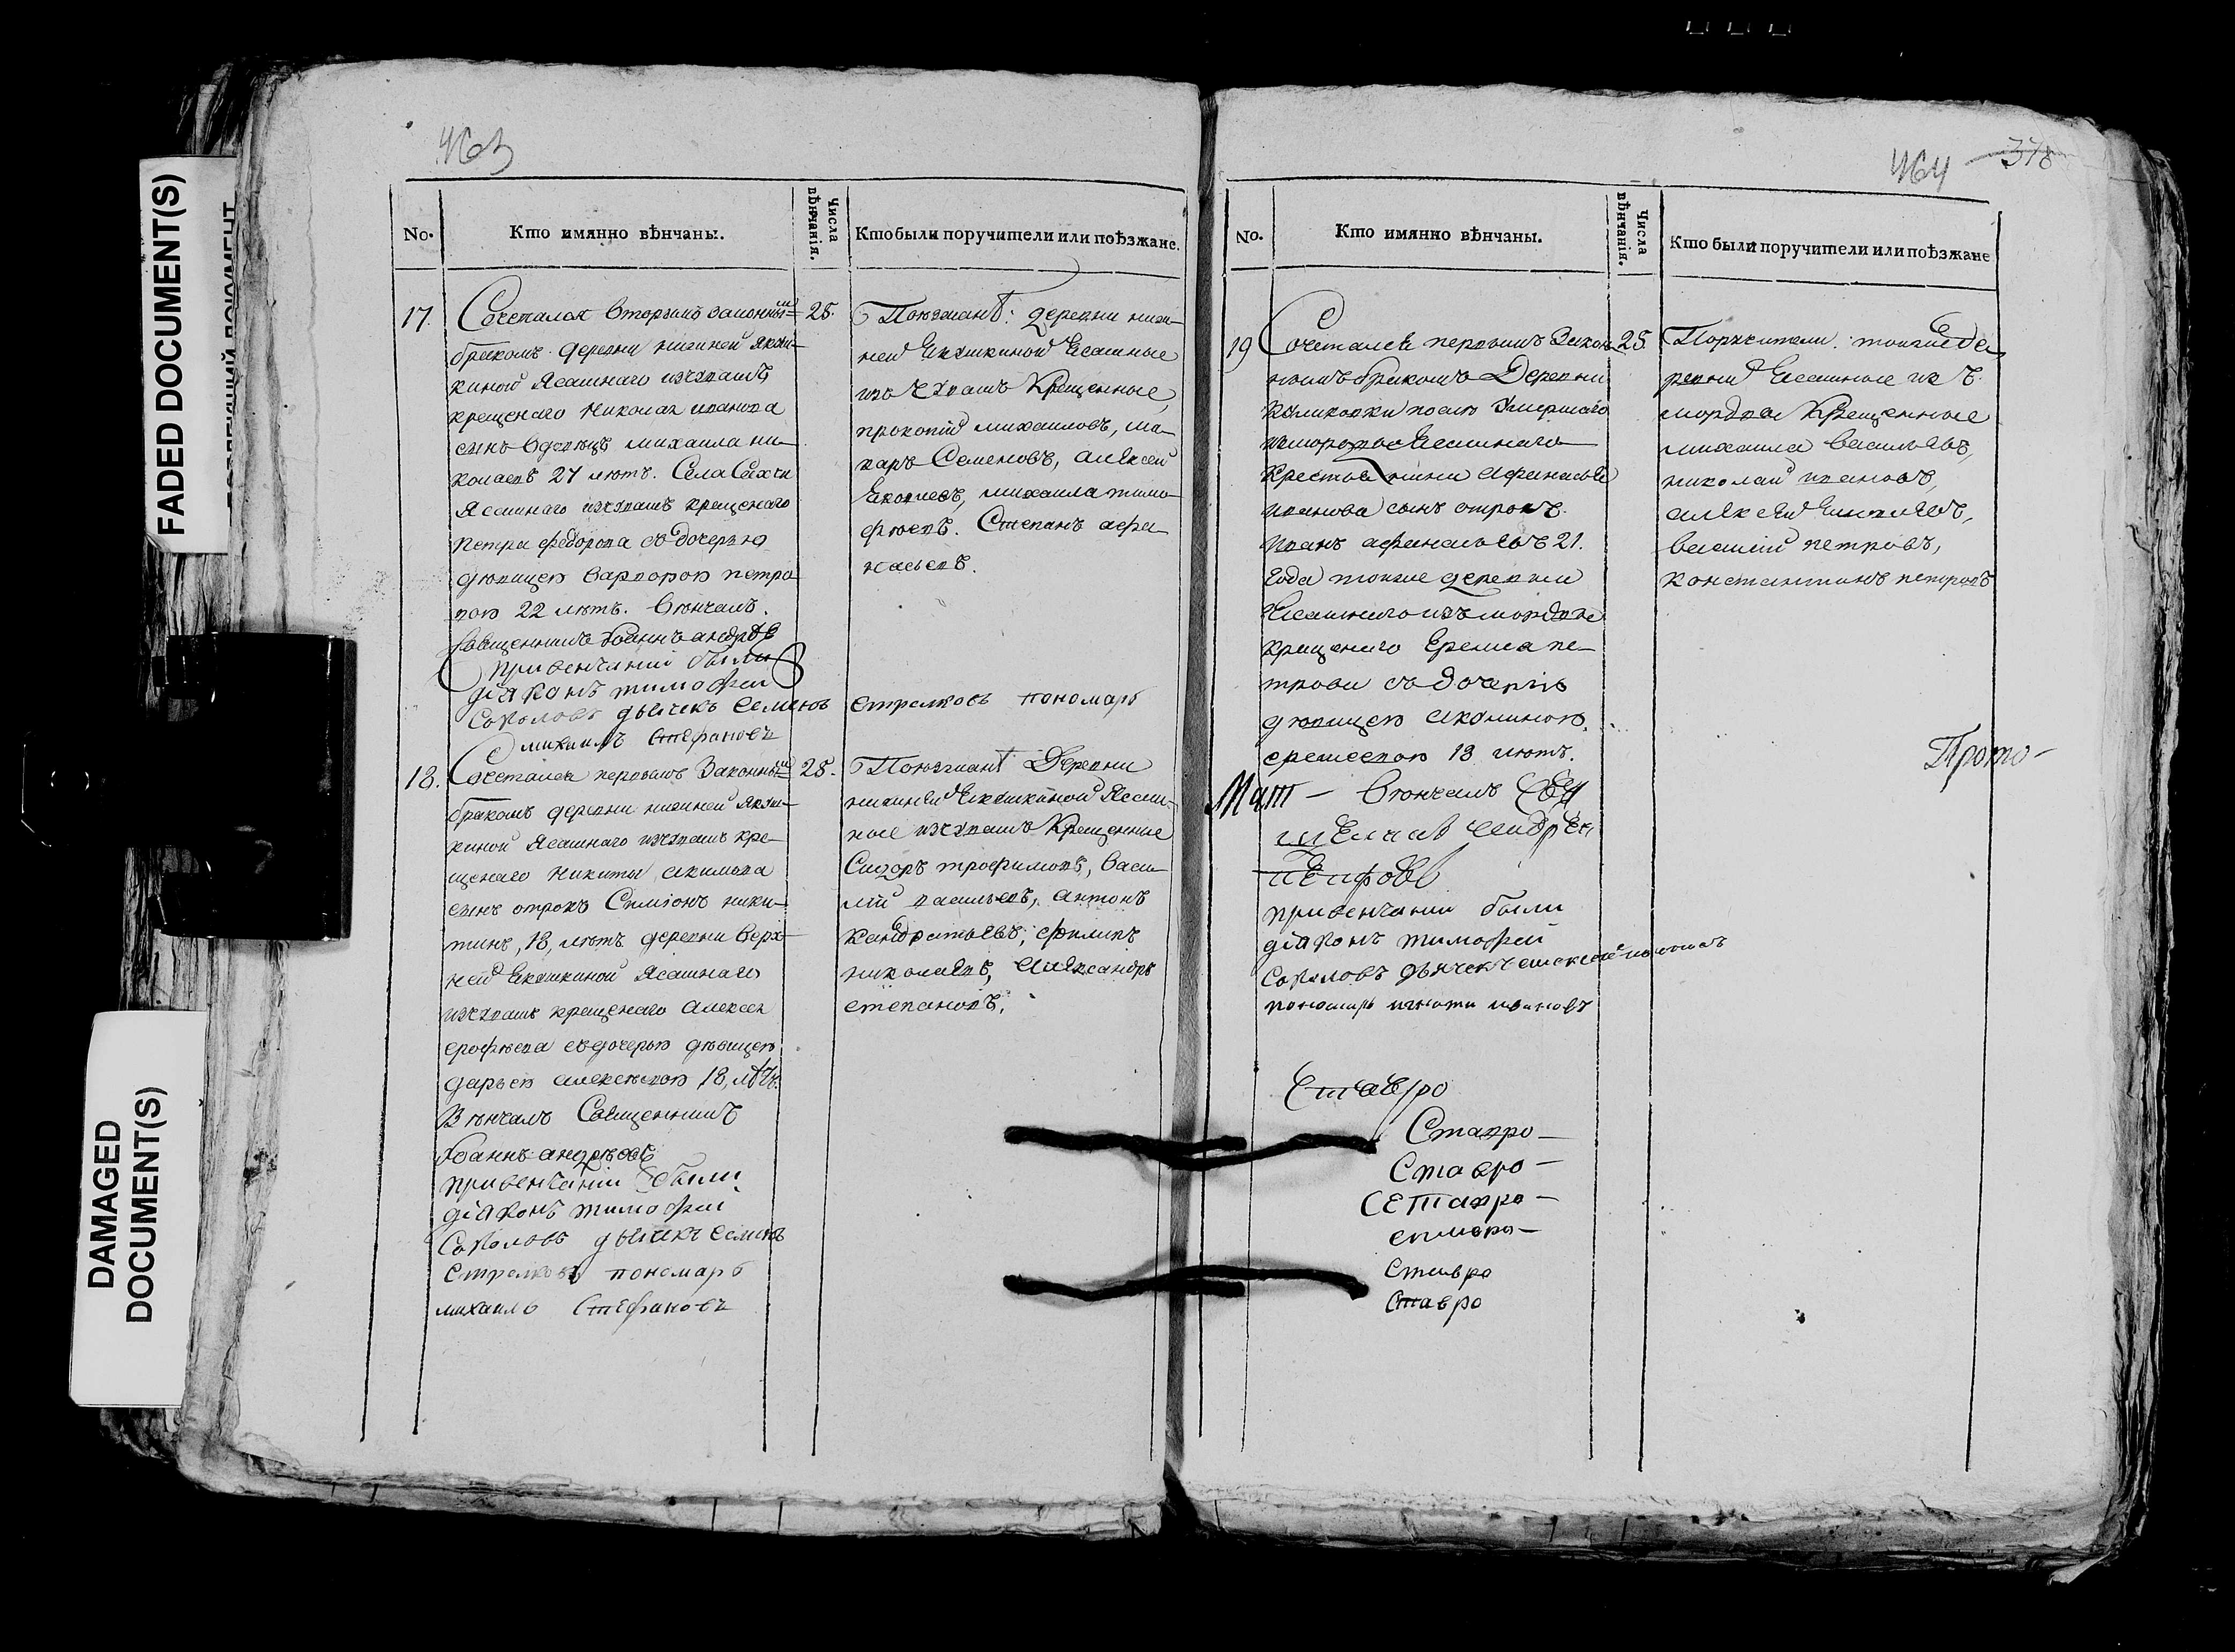 FADED DOCUMENT(S)
DAMAGED
DOCUMENT(S)
463
No.
Кто имянно вѣнчаны.
Числа
вѣнчанія.
Кто были поручители или поѣзжане.
17.
Сочетался вторымъ законнымъ
бракомъ деревни нижней Якуш-
киной Ясашнаго изчувашъ
крещенаго Николая иванова
сынъ вдовецъ михаила ни-
колаевъ 27 лѣтъ. Села
Ясашнаго изчувашъ крещенаго
петра федорова съ дочерью
дѣвицею варварою петро
вою 22 лѣтъ. вѣнчалъ.
Священникъ Иоаннъ андрѣевъ
привенчаніи были
діаконъ тимофей
Соколовъ дьячекъ Семенъ
стрелковъ пономарь
михаилъ Стефановъ
25.
Поѣзжанѣ: деревни ниж-
ней Екушкиной Есашные
изъ чувашъ Крещенные,
прокопій михаиловъ, ма-
каръ Семеновъ, алѣксей
михаила тимо-
фѣевъ. Степанъ афа-
насьевъ.
18.
Сочетался первымъ Законнымъ
бракомъ деревни нижней Якуш-
киной Ясашнаго изчувашъ кре-
щенаго никиты акимова
сынъ отрокъ Симіонъ ники-
тинъ, 18, лѣтъ деревни верх-
ней Екушкиной Ясашнаго
изчувашъ крещенаго алексея
ерофѣева съдочерью дѣвицею
дарьею алексѣевою 18, лѣтъ.
Вѣнчалъ Священникъ
Иоаннъ андрѣевъ
привенчаніи были
діаконъ тимофей
Соколовъ дьячекъ семенъ
Стрелковъ пономарь
михаилъ Стефановъ
25.
Поѣзжанѣ Деревни
нижнѣй Екушкиной Ясаш-
ные изчувашъ Крещенные
Сидоръ трофимовъ, васи-
лій васильевъ, антонъ
Кандратьевъ, филипъ
николаевъ, Алѣксандръ
степановъ.
464
378
No.
Кто имянно вѣнчаны.
Числа
вѣнчанія.
Кто были поручители или поѣзжане
19
Сочетался первымъ Закон
нымъ бракомъ Деревни
умершаго
Есашнаго
Крестьянина афанасья
иванова сынъ отрокъ
иванъ афанасьевъ 21.
года тоежъ деревни
Есашнаго изъ мордвы
крещенаго Еремея пе-
трова съ дочерью
дѣвицею акулиною
еремеевою 18 лѣтъ.
вѣнчалъ
привенчании были
діаконъ тимофей
Соколовъ дьячекъ
пономарь игнати ивановъ
25.
Поручители: тоежъ де
ревни Есашные изъ
мордвы Крещенные
михаила васильевъ,
николай ивановъ,
алѣксей
василій петровъ,
константинъ петровъ
Прото-
Ставро
Ставро-
Ставро-
Ставро-
Ставро
Ставро